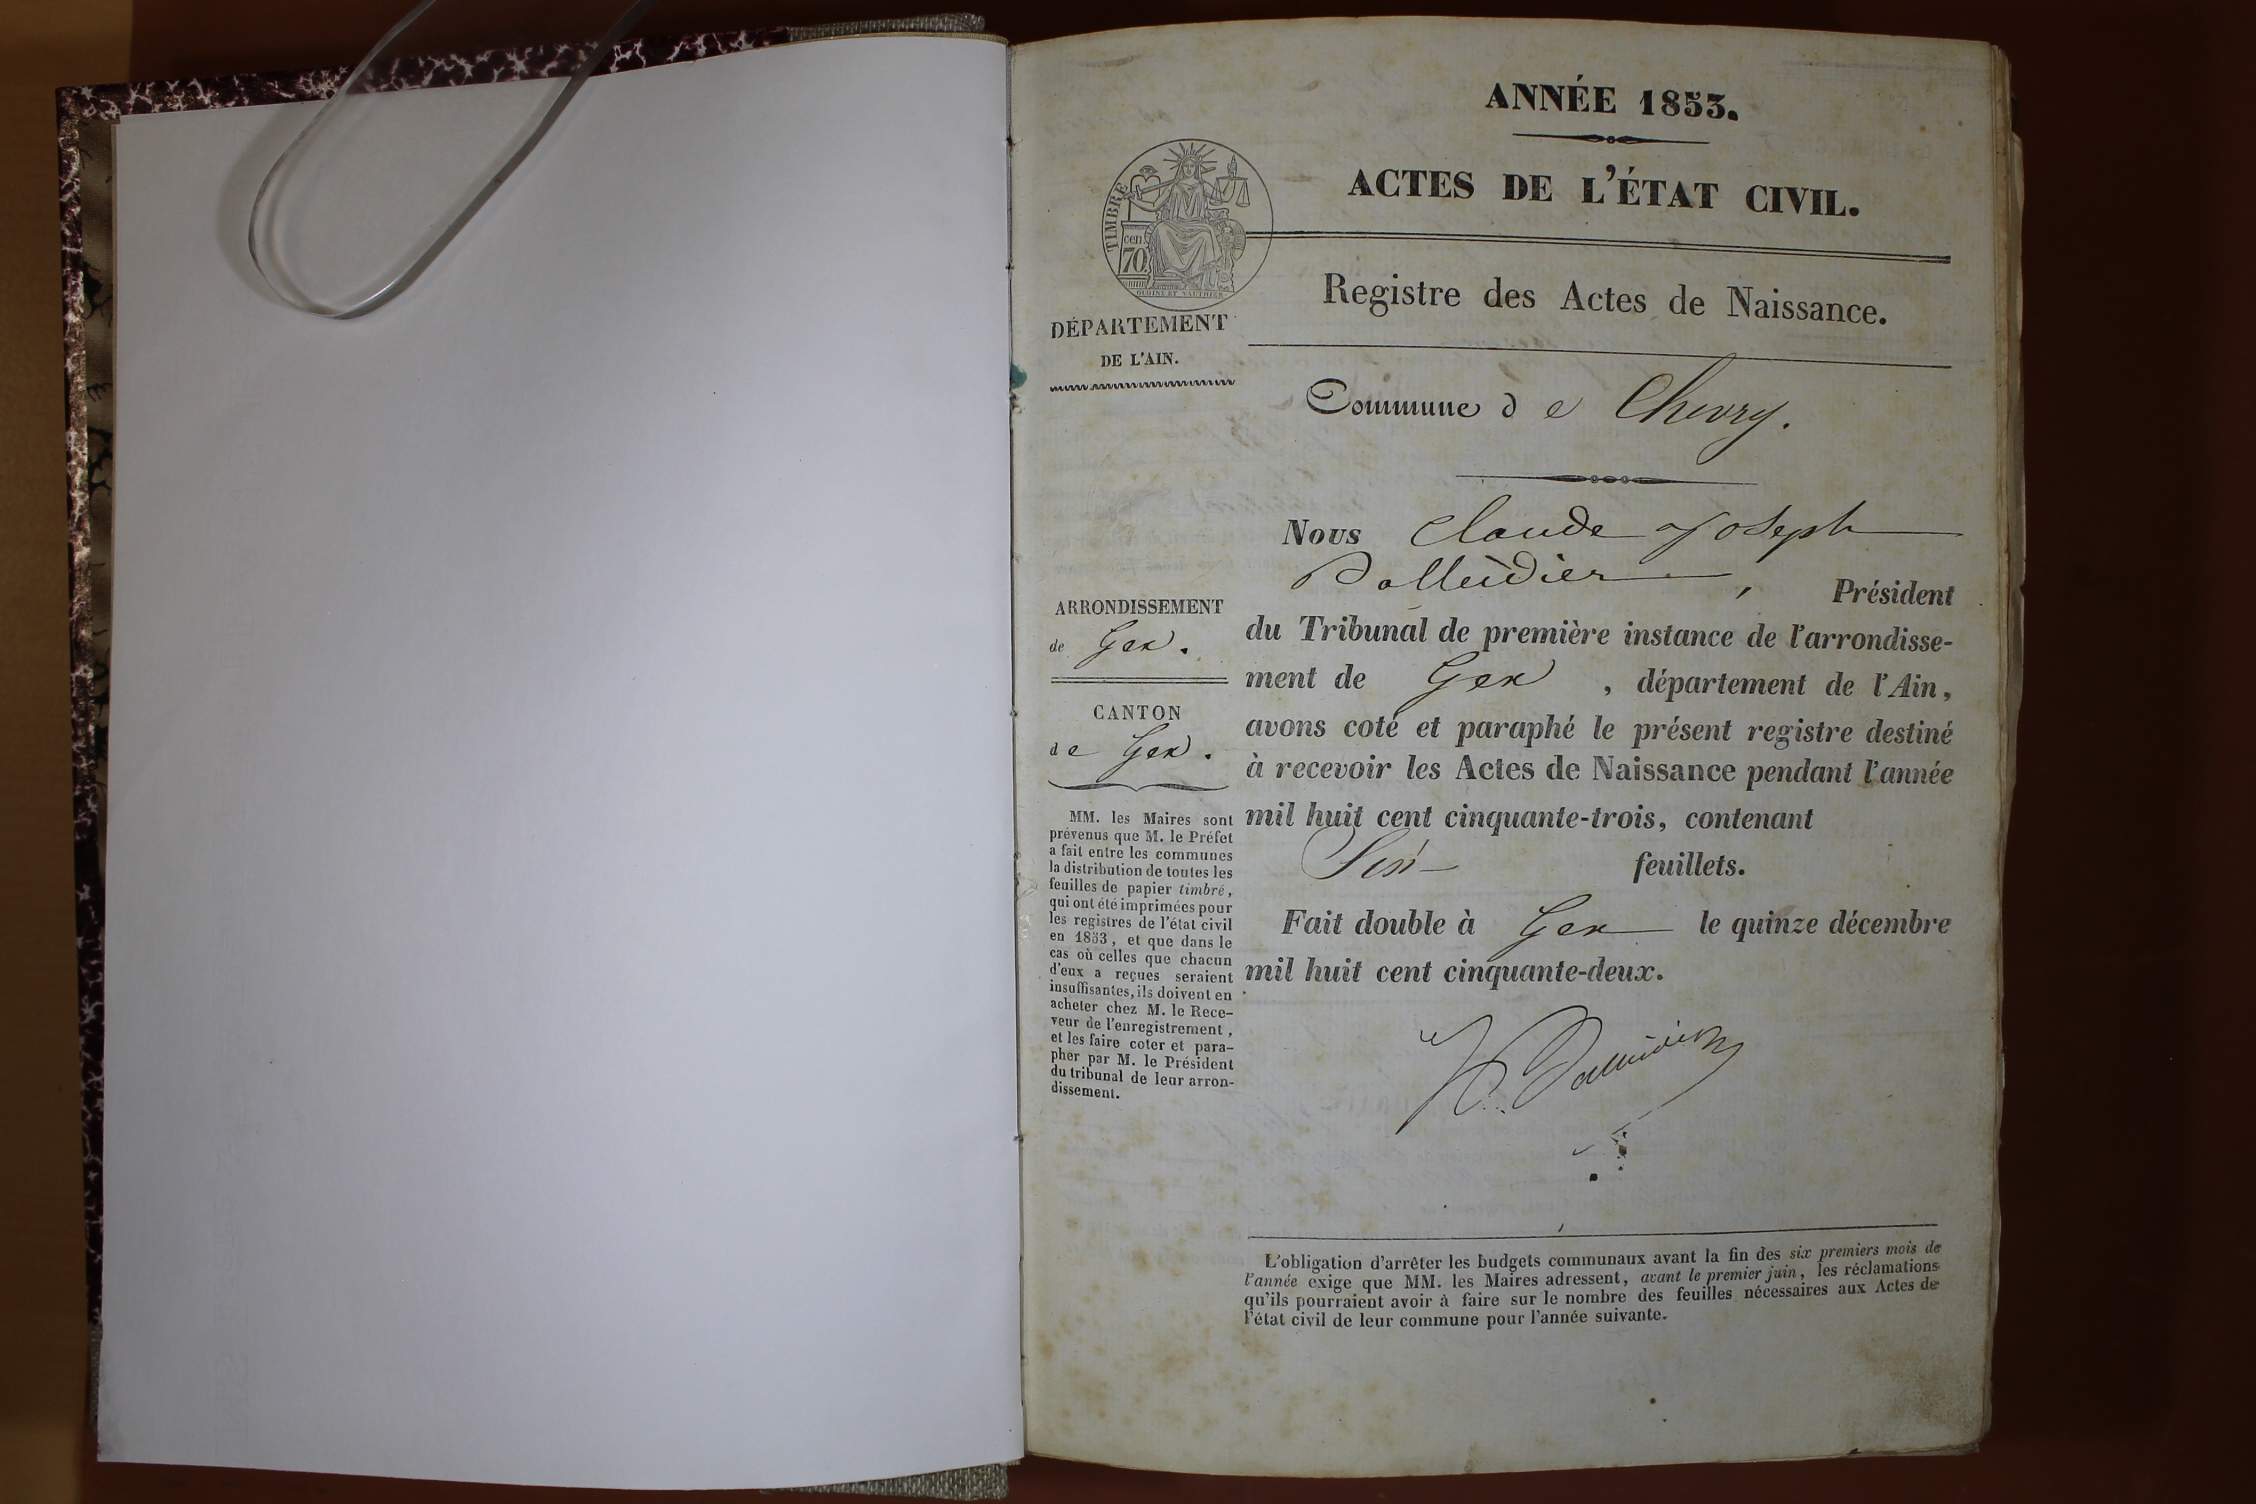 ANNÉE 1853.
ACTES DE L'ÉTAT CIVIL.
TIMBRE
cen.
70
OUDINÉ ET VAUTHIER
Registre des Actes de Naissance.
DÉPARTEMENT
DE L'AIN.
Commune de Chevry.
Nous Claude Joseph
, Président
du Tribunal de première instance de l'arrondisse-
ment de Gex, département de l'Ain,
avons coté et paraphé le présent registre destiné
à recevoir les Actes de Naissance pendant l'année
mil huit cent cinquante-trois, contenant
Six feuillets.
Fait double à Gex le quinze décembre
mil huit cent cinquante-deux.
ARRONDISSEMENT
de Gex.
CANTON
de Gex.
MM. les Maires sont
prévenus que M. le Préfet
a fait entre les communes
la distribution de toutes les
feuilles de papier timbré,
qui ont été imprimées pour
les registres de l'état civil
en 1853, et que dans le
cas où celles que chacun
d'eux a reçues seraient
insuffisantes, ils doivent en
acheter chez M. le Rece-
veur de l'enregistrement,
et les faire coter et para-
pher par M. le Président
du tribunal de leur arron-
dissement.
L'obligation d'arrêter les budgets communaux avant la fin des six premiers mois de
l'année exige que MM. les Maires adressent, avant le premier juin, les réclamations
qu'ils pourraient avoir à faire sur le nombre des feuilles nécessaires aux Actes de
l'état civil de leur commune pour l'année suivante.